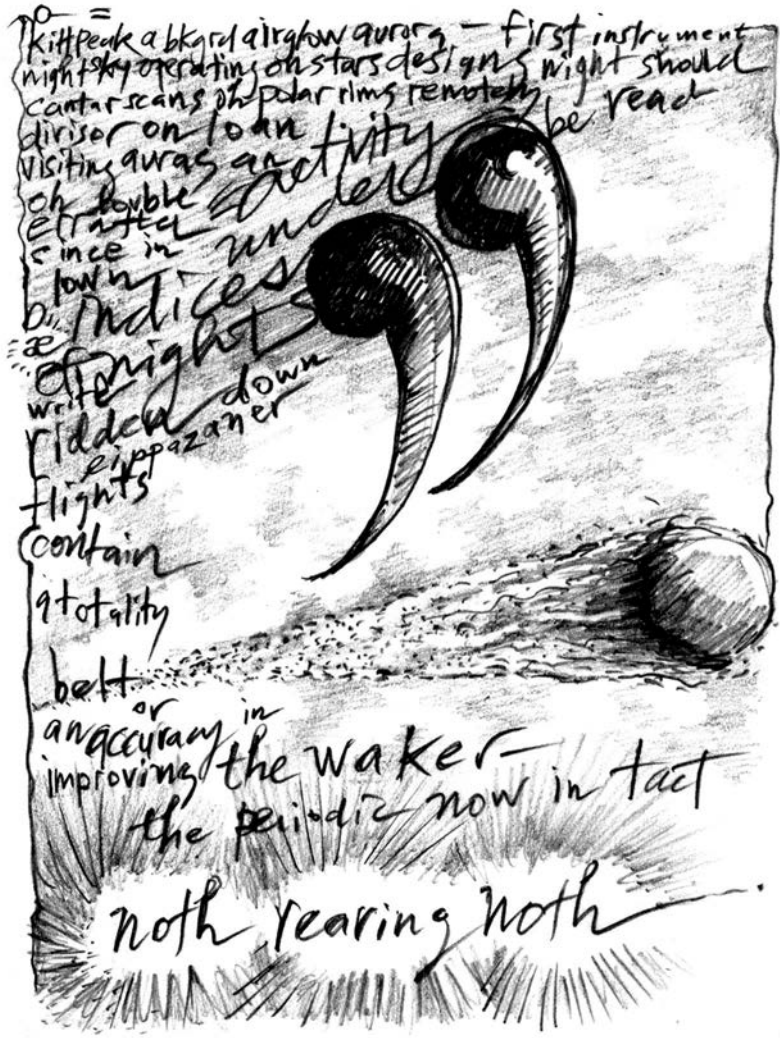 kittpeak a bkgrd airglow aurora — first instrument
nightsky operating on stars designs night should
cantar scans oh polar rims remotely be read
divisor on loan activity
visiting auras an under
oh
erratta
since in
lown
indices
of nights
write
ridden down
eippazaner
flights
contain
a totality
belt
or
an accuracy in
improving the waker—
the periodic now in tact
noth rearing noth